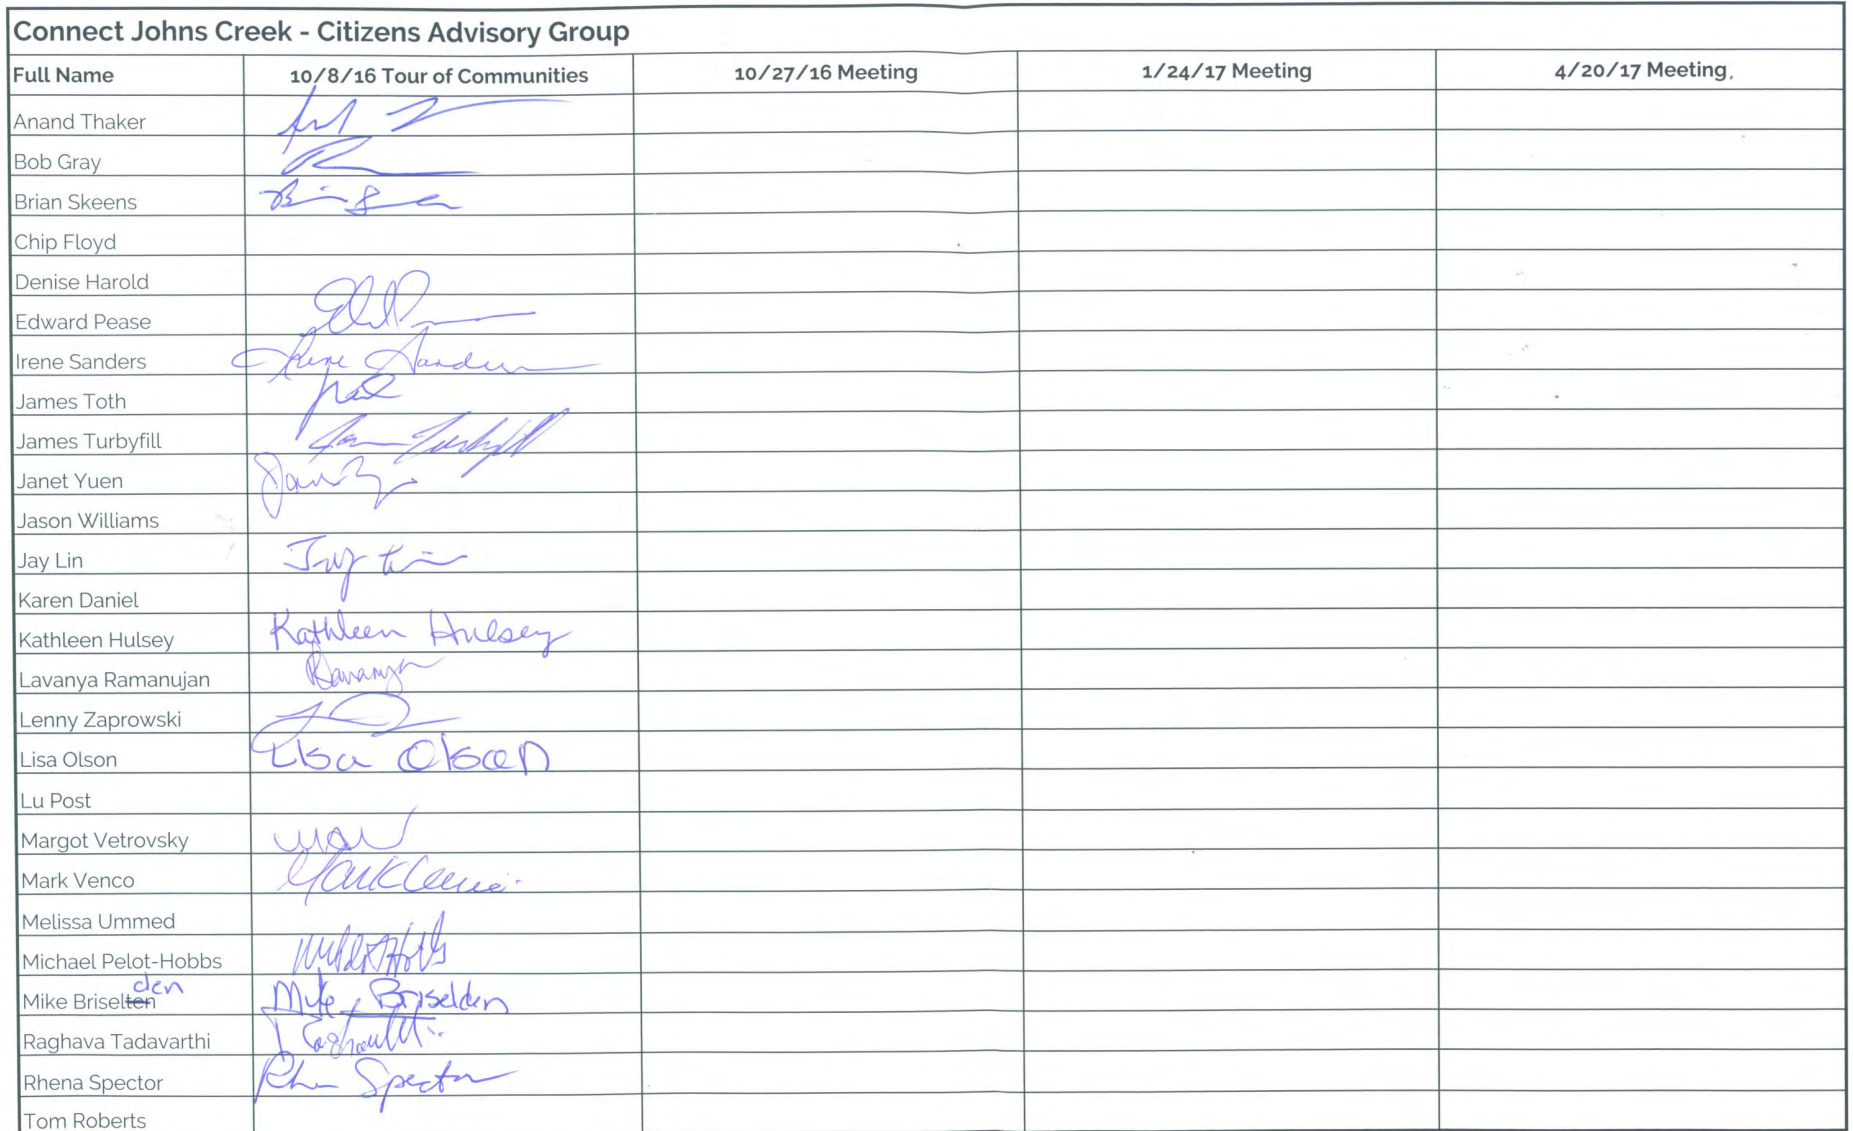 Connect Johns Creek - Citizens Advisory Group
Full Name 10/8/16 Tour of Communities 10/27/16 Meeting 1/24/17 Meeting 4/20/17 Meeting
Anand Thaker
Bob Gray
Brian Skeens
Chip Floyd
Denise Harold
Edward Pease
Irene Sanders Irene Sanders
James Toth
James Turbyfill James Turbyfill
Janet Yuen
Jason Williams
Jay Lin Jay Lin
Karen Daniel
Kathleen Hulsey Kathleen Hulsey
Lavanya Ramanujan
Lenny Zaprowski
Lisa Olson Lisa Olson
Lu Post
Margot Vetrovsky
Mark Venco
Melissa Ummed
Michael Pelot-Hobbs
den
Mike Briselten Mike Briselden
Raghava Tadavarthi
Rhena Spector Rhena Spector
Tom Roberts